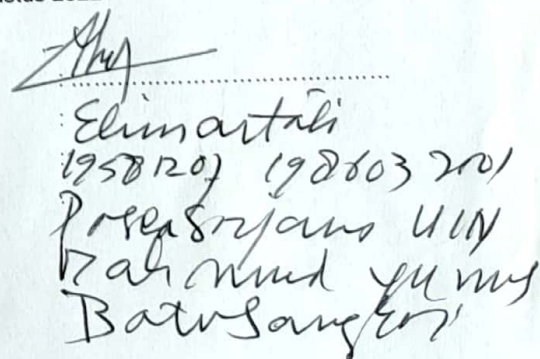 Elimartati
19581207 198603 2001
Pascasarjana UIN
Mahmud Yunus
Batusangkar